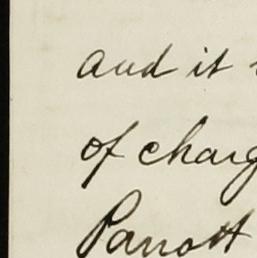 and it
of charg
Parrott